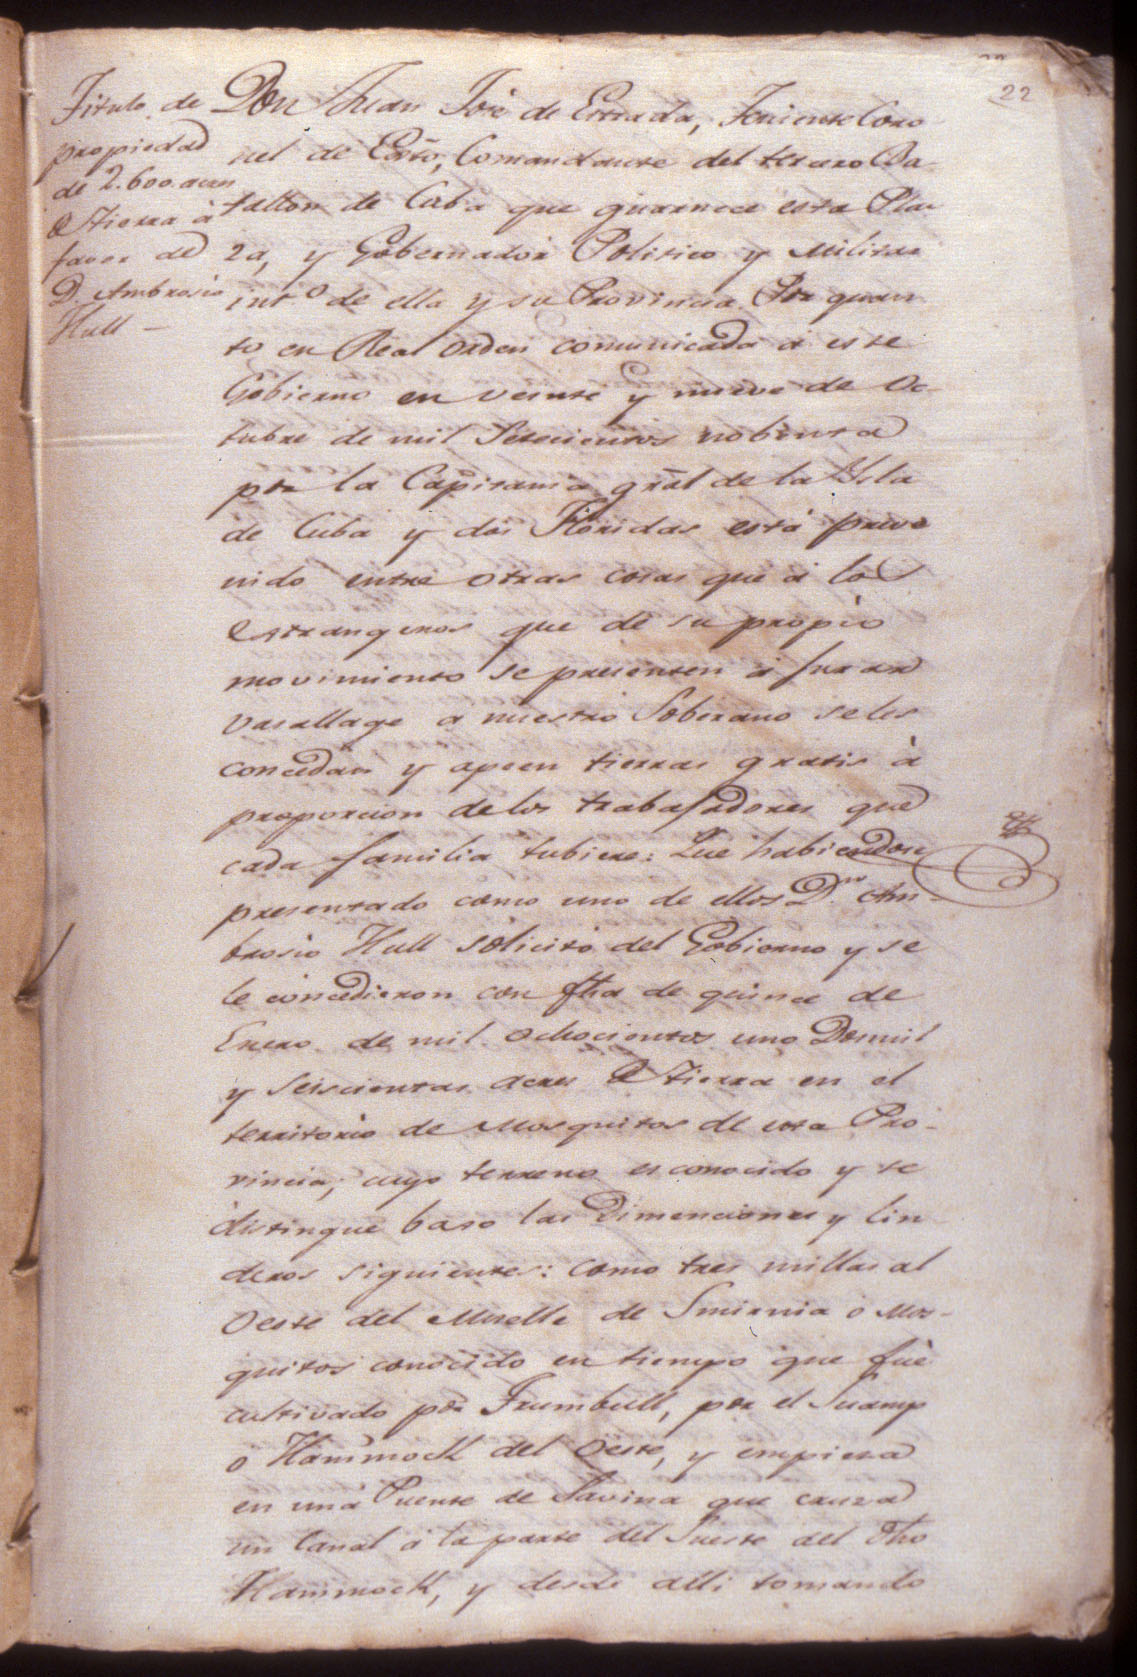 22
Titulo de
propiedad
de 2.600 acres
de Tierra à
favor de
D. Ambrosio
Hull —
Don Juan José de Estrada, Teniente Coro
nel de Exto, Comandante del tercero Ba-
tallon de Cuba que guarnece esta Pla-
za, y Gobernador Politico y Militar
int.º de ella y su Provincia Por quan
to en Real orden comunicada á este
Gobierno en veinte y nueve de Oc-
tubre de mil Setecientos nobenta
por la Capitania gral de la Ysla
de Cuba y dos Floridas está preve
nido entre otras cosas que á los
estrangeros que de su propio
movimiento se presenten á jurar
vasallage a nuestro Soberano se les
concedan y apeen tierras gratis à
proporcion de los trabajadores que
cada familia tubiere: Que habiendose
presentado como uno de ellos Dn. Am-
brosio Hull solicitó del Gobierno y se
le concedieron con fha de quince de
Enero de mil ochocientos uno Dosmil
y seiscientas acres de Tierra en el
territorio de Mosquitos de esta Pro-
vincia; cuyo terreno es conocido y se
distingue baxo las Dimenciones y lin
deros siguientes: como tres millas al
Oeste del Muelle de Smirnia o Mos-
quitos conocido en tiempo que fué
cultivado por Trumbull, por el Suamp
o Hammock del Oeste, y empieza
en una Puente de Savina que cruza
un Canal á la parte del Sueste del dho
Hammock, y desde alli tomando